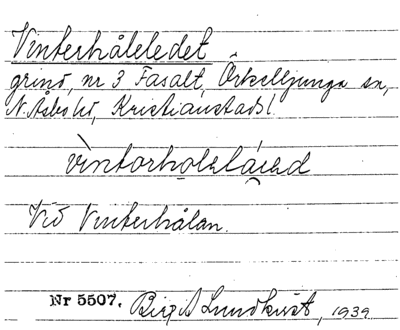 Vinterhåleledet
grind, nr 3 Fasalt, Örkelljunga sn,
N. Åsbo hd, Kristianstads l.
Vid Vinterhålan.
Nr 5507. Birgit Lundkvist, 1939